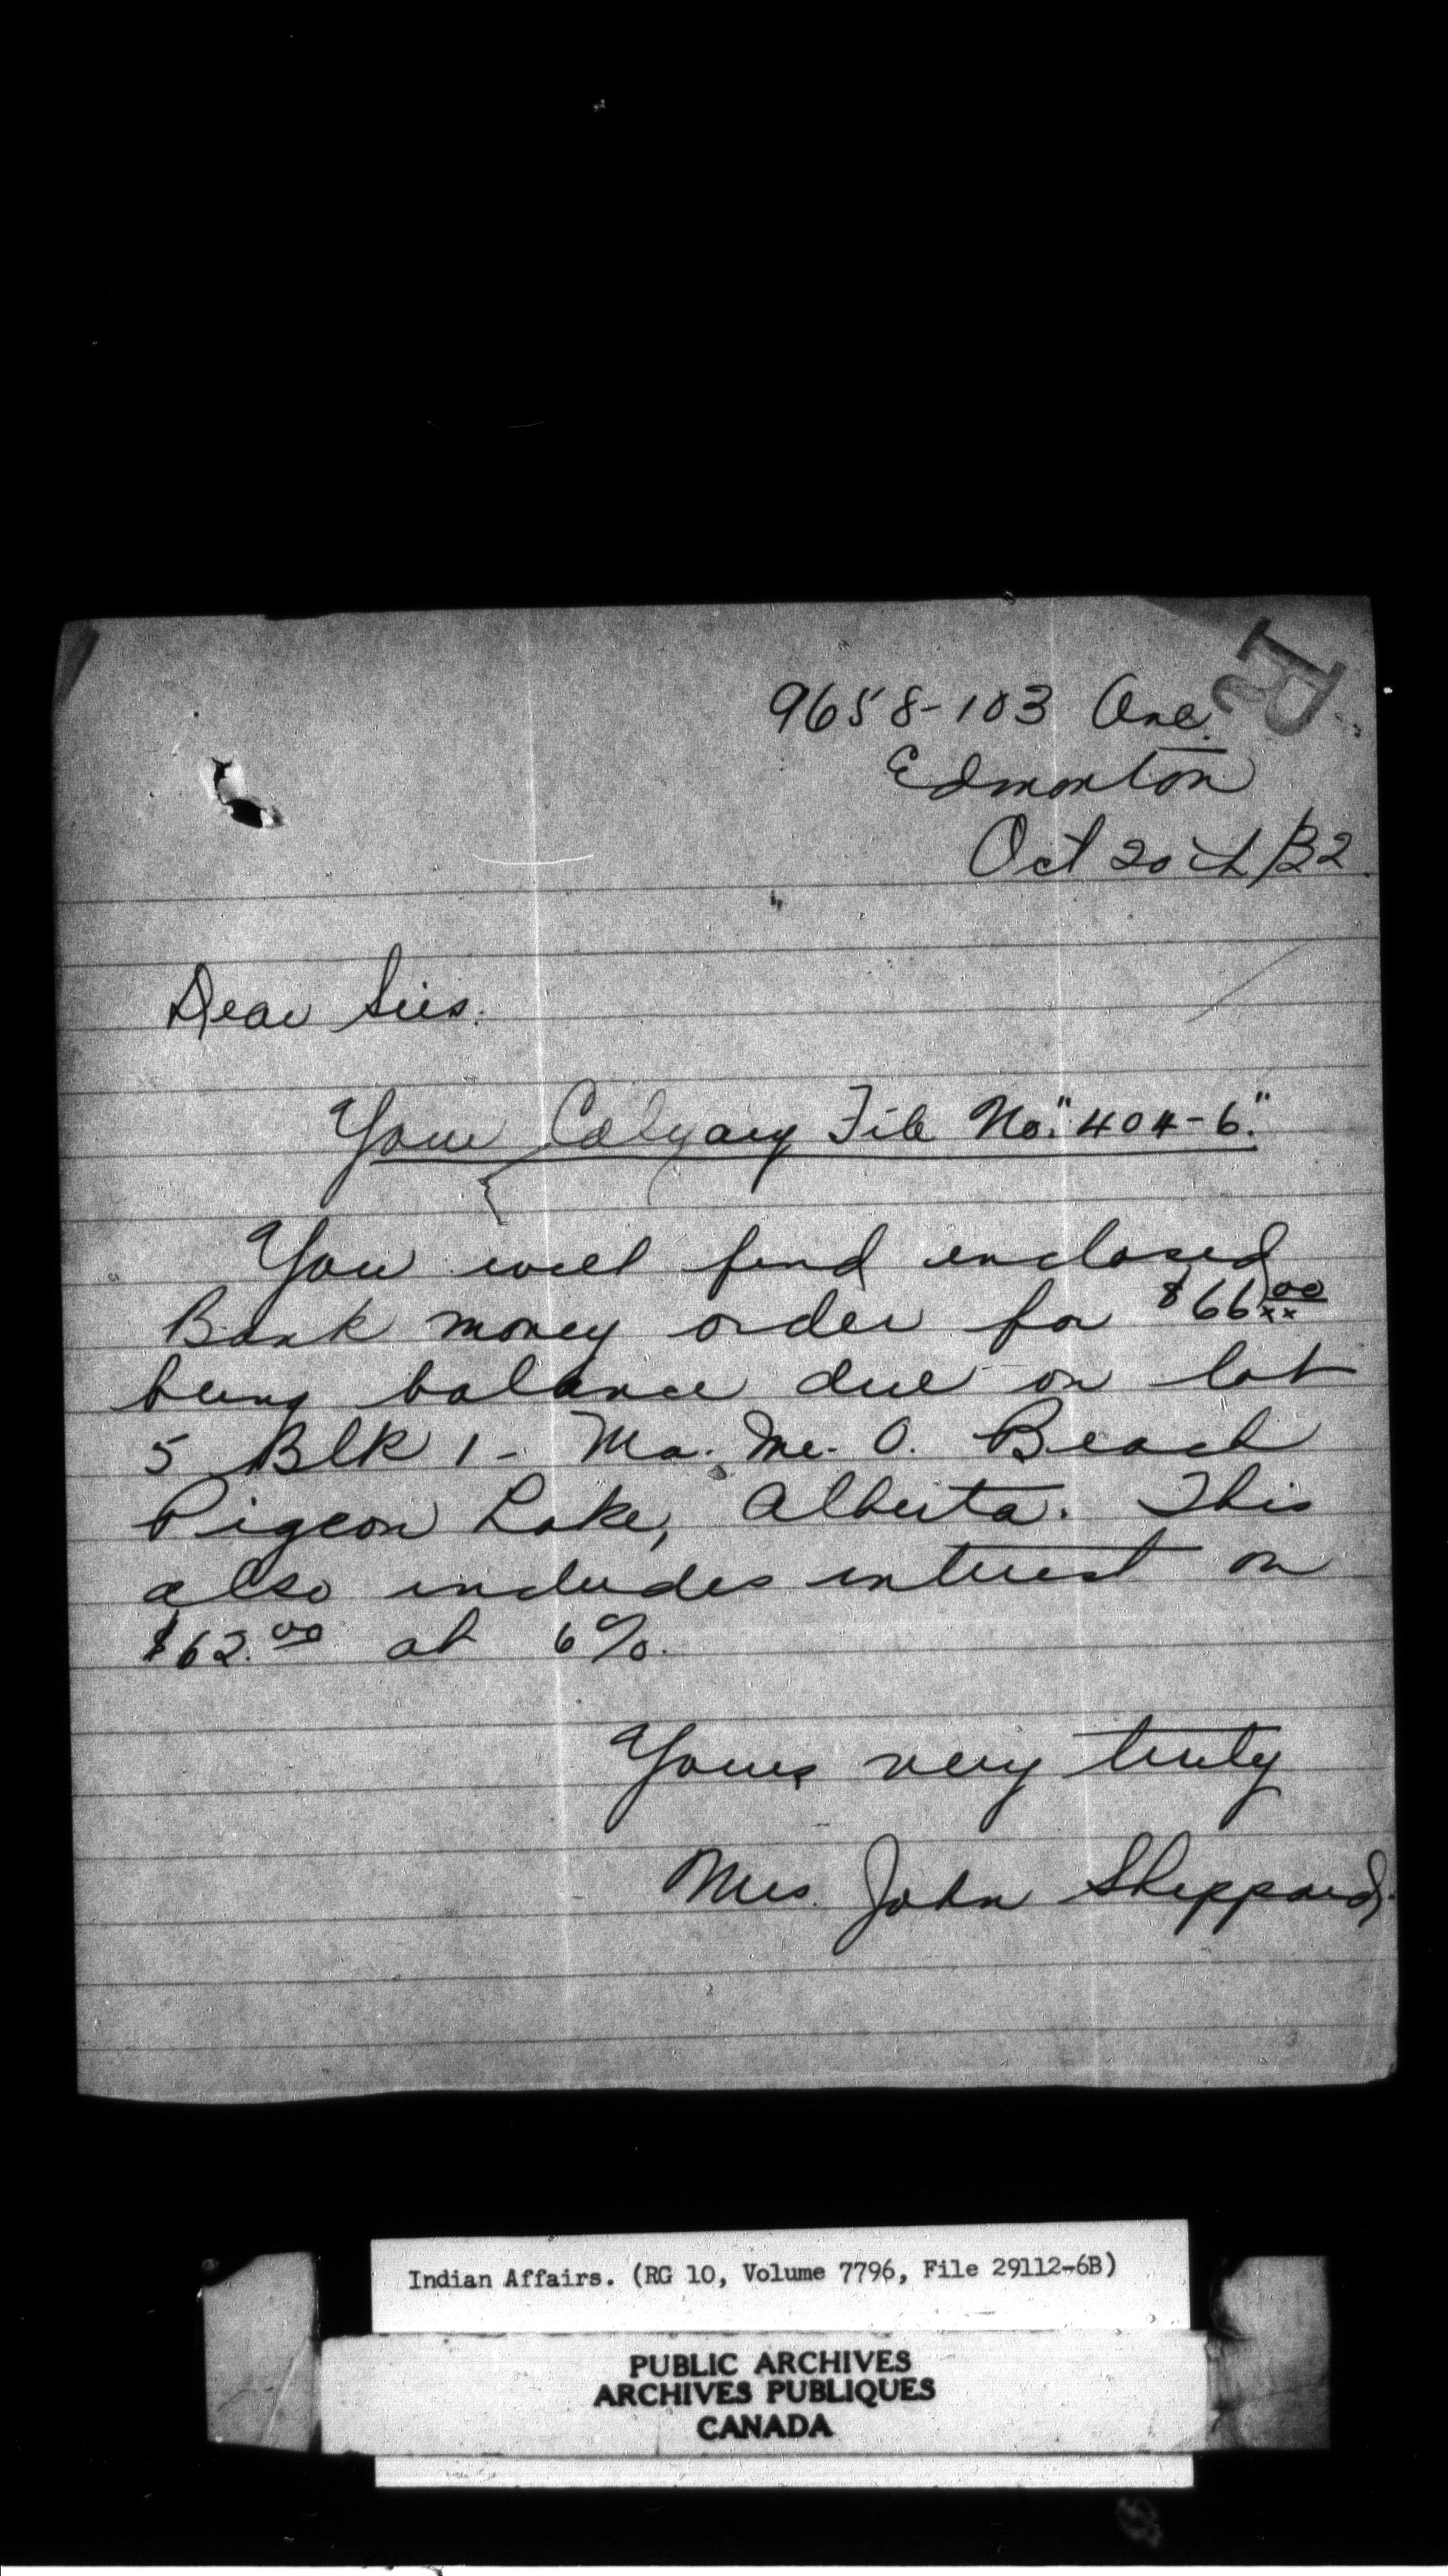 R
9658-103 Ave.
Edmonton
Oct 20th/32.
Dear Sirs.
Your Calgary File No. "404-6."
You will find enclosed
Bank money order for $66 00/xx
being balance due on lot
5 Blk 1 - Ma. Me. O. Beach
Pigeon Lake, Alberta. This
also includes interest on
$62.00 at 6%.
Yours very truly
Mrs. John Sheppard.
Indian Affairs. (RG 10, Volume 7796, File 29112-6B)
PUBLIC ARCHIVES
ARCHIVES PUBLIQUES
CANADA